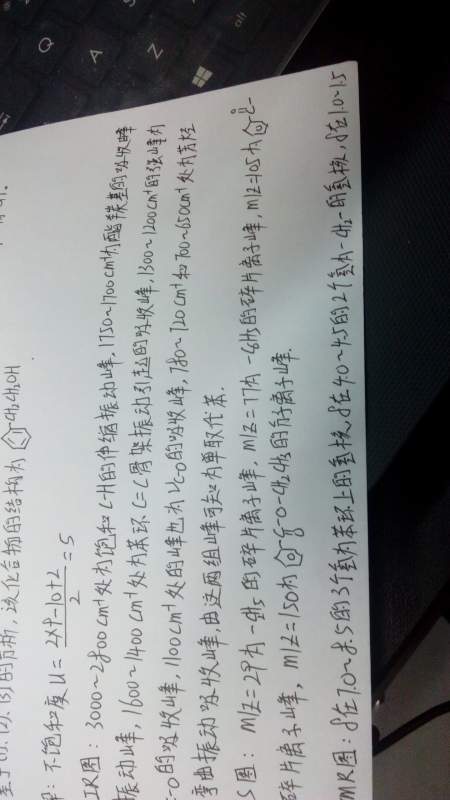 基于(1), (2), (3)的分析, 该化合物的结构为 CH₂CH₂OH.
不饱和度U = (2×9-10+2)/2 = 5
IR图: 3000~2800cm⁻¹处为饱和C-H的伸缩振动峰, 1750~1700cm⁻¹为酯羰基的吸收峰
振动峰, 1600~1400cm⁻¹处为苯环C=C骨架振动引起的吸收峰, 1300~1200cm⁻¹的强峰为
C-O的吸收峰, 1100cm⁻¹处的峰也为νC-O的吸收峰, 780~720cm⁻¹和700~650cm⁻¹处为芳烃
弯曲振动吸收峰, 由这两组峰可知为单取代苯.
S图: m/z=29为-C₂H₅的碎片离子峰, m/z=77为-C₆H₅的碎片离子峰, m/z=105为 O C-
碎片离子峰, m/z=150为 C-O-CH₂CH₃的分子离子峰.
MR图: δ在7.0~8.5的3个氢为苯环上的氢核, δ在4.0~4.5的2个氢为-CH₂-的氢核, δ在1.0~1.5